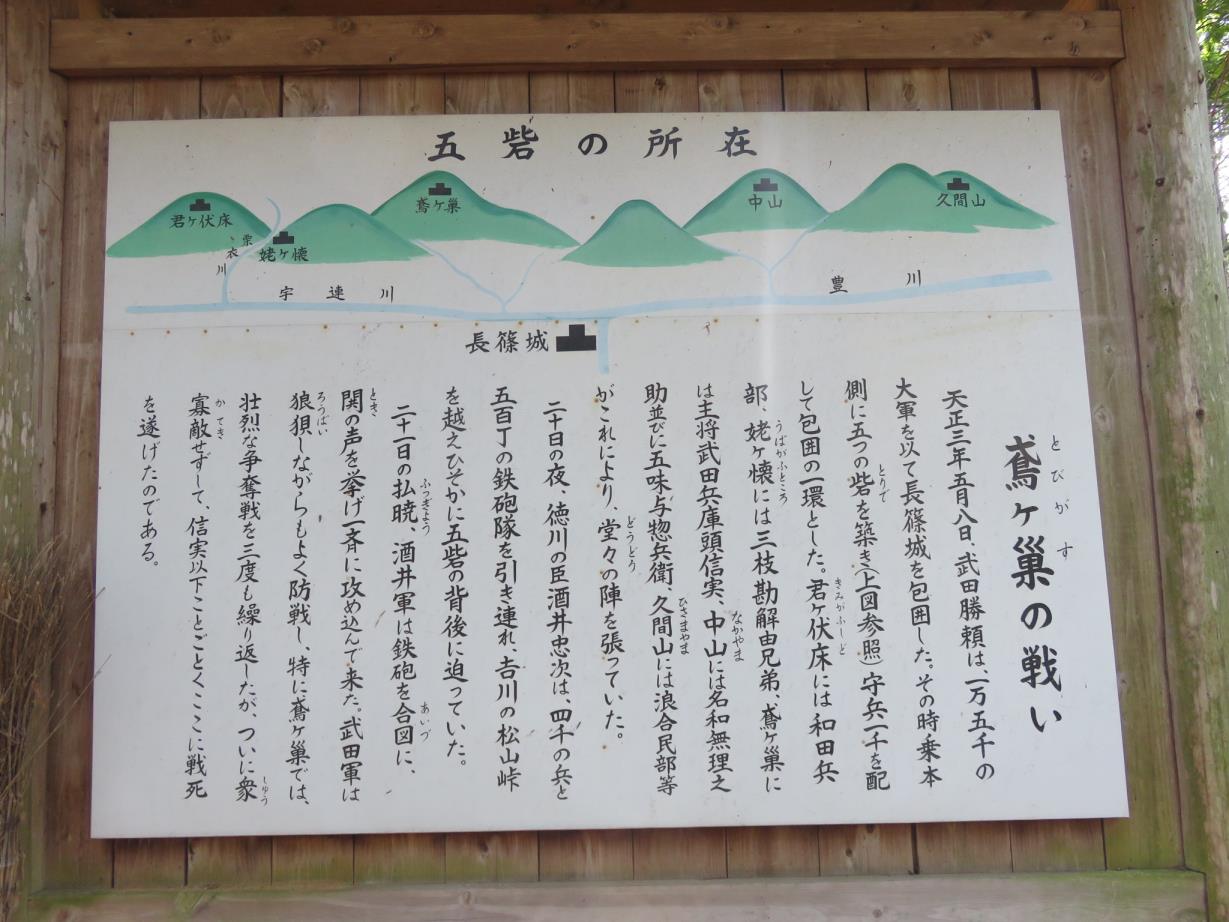 五砦の所在
君ケ伏床
栗衣川
姥ケ懐
鳶ケ巣
中山
久間山
宇連川
豊川
長篠城
とびがす
鳶ヶ巣の戦い
天正三年五月八日、武田勝頼は、一万五千の
大軍を以て長篠城を包囲した。その時乗本
とりで
側に五つの砦を築き(上図参照)守兵一千を配
きみがふしど
して包囲の一環とした。君ケ伏床には和田兵
うばがふところ
部、姥ケ懐には三枝勘解由兄弟、鳶ケ巣に
なかやま
は主将武田兵庫頭信実、中山には名和無理之
ひさまやま
助並びに五味与惣兵衛、久間山には浪合民部等
どうどう
がこれにより、堂々の陣を張っていた。
二十日の夜、徳川の臣酒井忠次は、四千の兵と
五百丁の鉄砲隊を引き連れ、吉川の松山峠
を越えひそかに五砦の背後に迫っていた。
ふつぎよう あいづ
二十一日の払暁、酒井軍は鉄砲を合図に、
とき
関の声を挙げ一斉に攻め込んで来た。武田軍は
ろうばい
狼狽しながらもよく防戦し、特に鳶ヶ巣では、
壮烈な争奪戦を三度も繰り返したが、ついに衆
しゅう
かてき
寡敵せずして、信実以下ことごとくここに戦死
を遂げたのである。